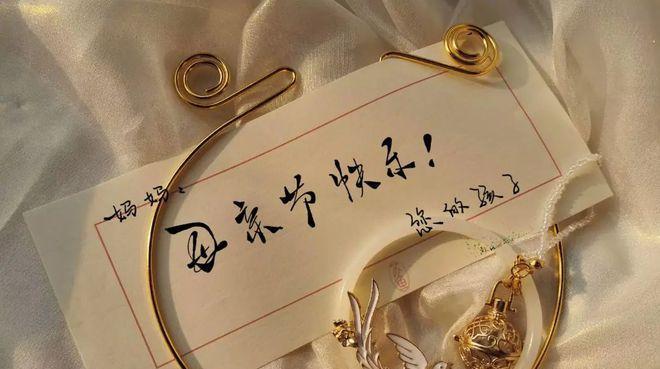 妈妈、
母亲节快乐！
您的孩子